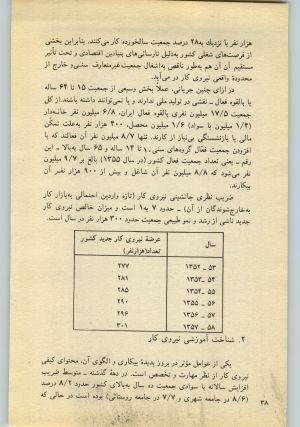 هزار نفر با نزدیك به ۲۸ درصد جمعیت سالخورده کار می‌کنند. بنابراین بخشی
از فرصت‌های شغلی کشور به‌دلیل نارسائی‌های بنیادین اقتصادی و تحت تأثیر
مستقیم آن آن هم به‌طور ناقص به‌اشغال جمعیت غیرمتعارف سنی و خارج از
محدودهٔ واقعی نیروی کار در می‌آید.
در ازای چنین جریانی، عملاً بخش وسیعی از جمعیت ۱۵ تا ۶۴ ساله
یا بالقوه فعال ـ نقشی در تولید ملی ندارند و یا نمی‌توانند داشته باشند. از کل
جمعیت ۱۷/۵ میلیون نفری بالقوه فعال ایران، ۶/۸ میلیون نفر خانه‌دار
(۱/۴ میلیون با سواد) ۱/۶ میلیون محصل، ۳۰۰ هزار نفر به‌علت تمکن
مالی یا بازنشستگی بی‌نیاز از کارند. تنها ۸/۷ میلیون نفر آن فعالند که با
افزودن جمعیت فعال گروه‌های سنی ۱۰ تا ۱۴ ساله و ۶۵ ساله به‌بالا ـ این
رقم ـ یعنی تعداد جمعیت فعال کشور (در سال ۱۳۵۵) بالغ بر ۹/۷ میلیون
نفر می‌شود که ۸/۸ میلیون نفر آن شاغل و بیش از ۹۰۰ هزار نفر آن
بیکارند.
ضریب نظری جانشینی نیروی کار (تازه واردین احتمالی به‌بازار کار
به‌خارج‌شوندگان از آن) ـ حدود ۷ به ۱ است و میزان خالص نیروی کار
جدید ناشی از رشد و نمو طبیعی جمعیت حدود ۳۰۰ هزار نفر در سال است.
سال	عرضهٔ نیروی کار جدید کشور تعداد (هزارنفر)
۵۳ ـ ۱۳۵۲	۲۷۷
۵۴ ـ ۱۳۵۳	۲۸۱
۵۵ ـ ۱۳۵۴	۲۸۵
۵۶ ـ ۱۳۵۵	۲۹۰
۵۷ ـ ۱۳۵۶	۲۹۶
۵۸ ـ ۱۳۵۷	۳۰۱
۲. شناخت آموزشی نیروی کار
یکی از عوامل مؤثر در بروز پدیدهٔ بیکاری و الگوی آن، محتوای کیفی
نیروی کار از نظر مهارت و تخصص است. در دههٔ گذشته ـ متوسط ضریب
افزایش سالانه با سوادی جمعیت ده ساله به‌بالای کشور حدود ۸/۲ درصد
(۸/۶ در جامعه شهری و ۷/۷ در جامعه روستائی) بوده است در حالی که
۳۸